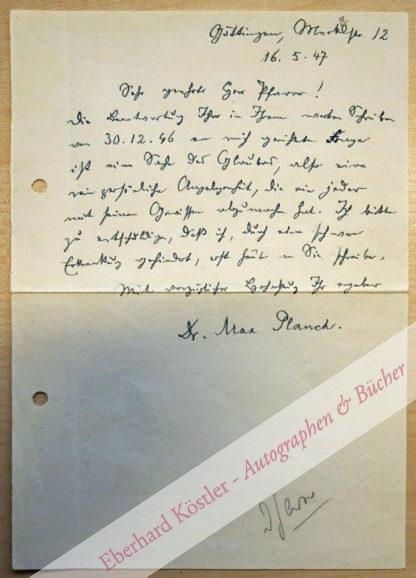 Göttingen, Merkelstr. 12
16. 5. 47
Sehr geehrter Herr Pfarrer!
Die Beantwortung Ihrer in Ihrem werten Schreiben
vom 30.12.46 an mich gerichteten Frage
ist eine Sache des Glaubens, also eine
rein persönliche Angelegenheit, die ein jeder
mit seinem Gewissen abzumachen hat. Ich bitte
zu entschuldigen, daß ich, durch eine schwere
Erkrankung gehindert, erst heute an Sie schreibe.
Mit vorzüglicher Hochachtung Ihr ergebener
Dr. Max Planck.
Eberhard Köstler - Autographen & Bücher